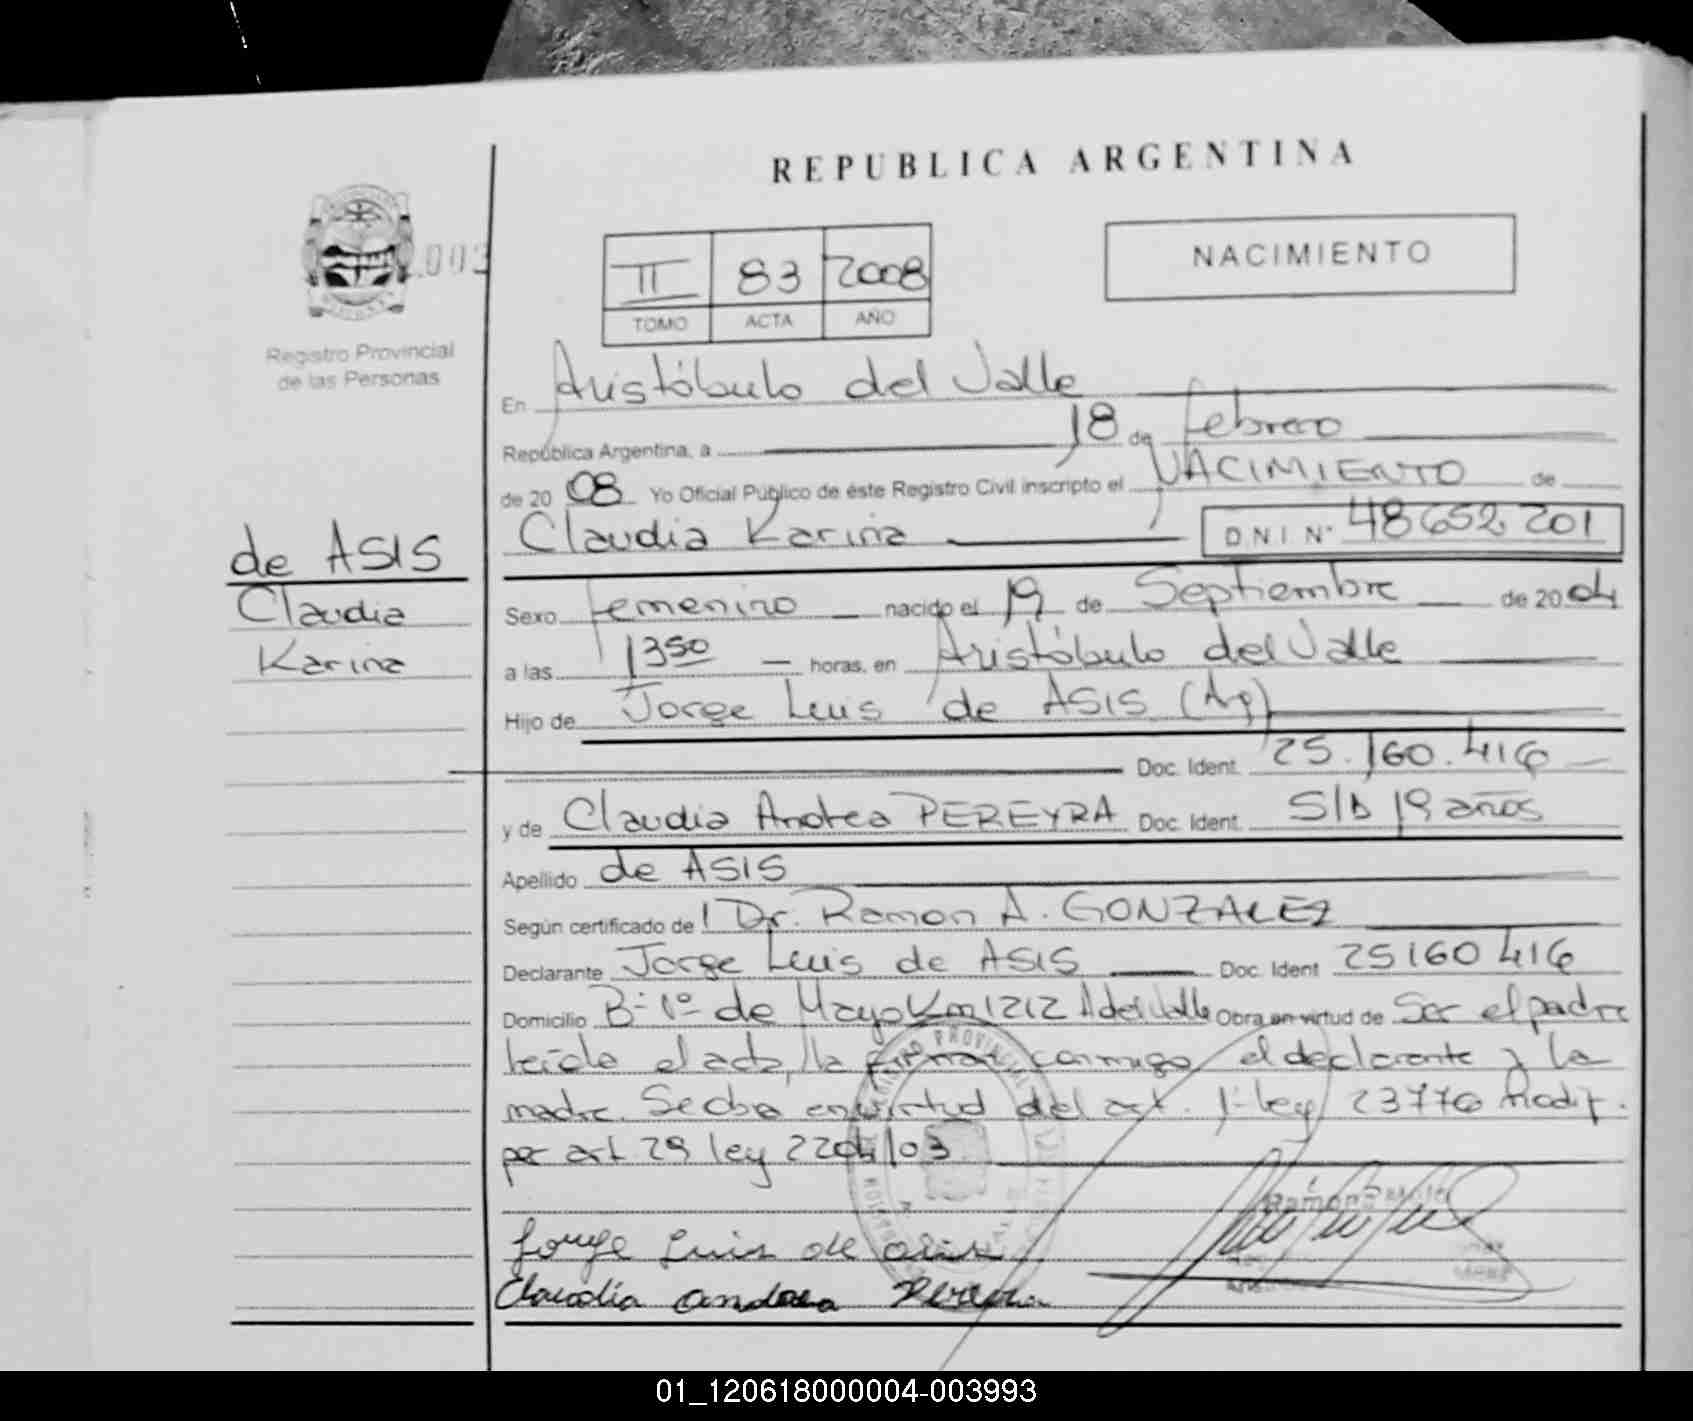 REPUBLICA ARGENTINA
NACIMIENTO
II 83 2008
TOMO ACTA AÑO
.003
Registro Provincial
de las Personas
En Aristóbulo del Valle
República Argentina, a 18 de febrero
de 2008 Yo Oficial Público de éste Registro Civil inscripto el NACIMIENTO de
Claudia Karina DNI Nº 48652201
de ASIS
Claudia
Karina
Sexo femenino nacido el 19 de Septiembre de 2004
a las 1350 horas, en Aristóbulo del Valle
Hijo de Jorge Luis de ASIS (Arg)
Doc. Ident. 25.160.416
y de Claudia Andrea PEREYRA Doc. Ident. S/D 19 años
Apellido de ASIS
Según certificado de Dr. Ramon A. GONZALEZ
Declarante Jorge Luis de ASIS Doc. Ident 25160416
Domicilio Bº 1º de Mayo Km 1212 A del Valle Obra en virtud de Ser el padre
leída el acta, la firman conmigo el declarante y la
madre. Se obra en virtud del art. 1º ley 23776 Modif.
por art 29 ley 2204/03
Jorge Luis de asis
Claudia andrea Pereyra
01_120618000004-003993